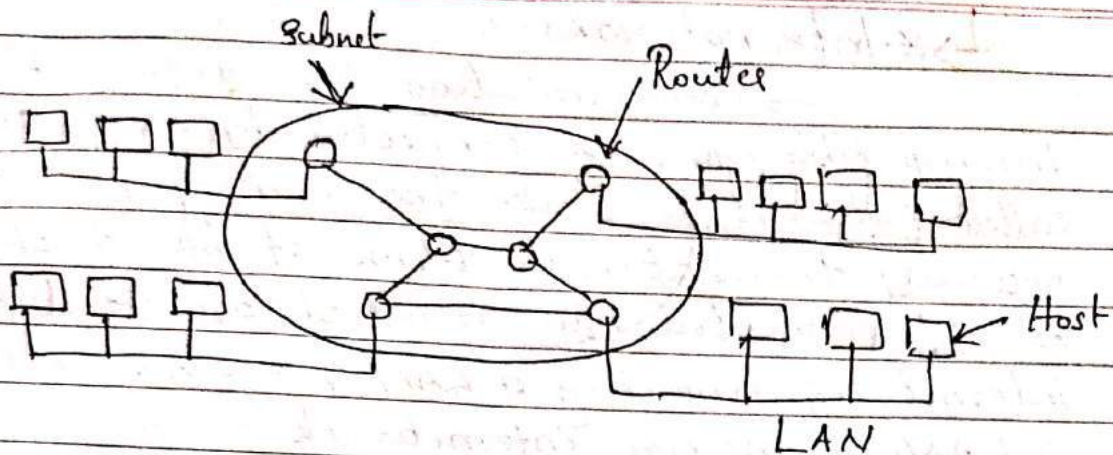 Subnet
Router
Host
LAN